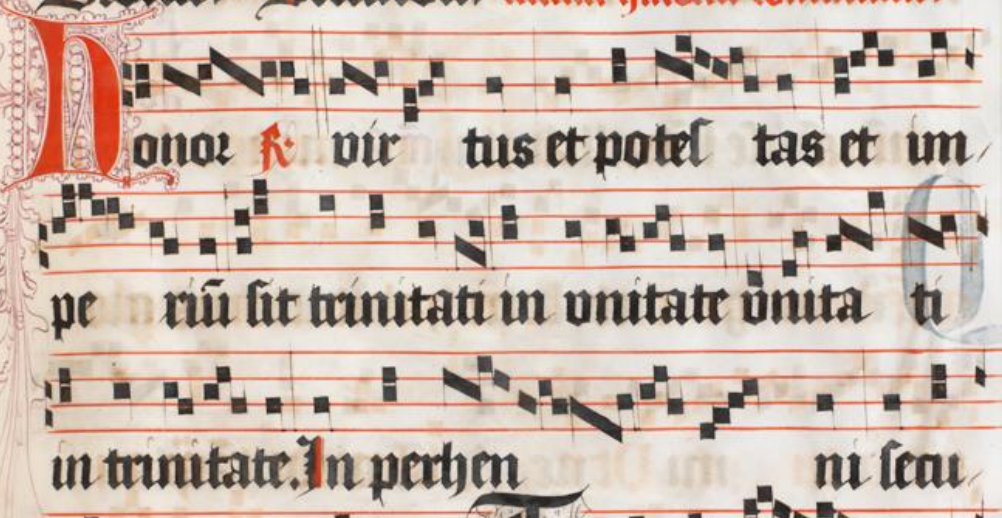 Honor R. vir tus et potes tas et im
pe riū sit trinitati in vnitate vnita ti
in trinitate. In perhen ni secu